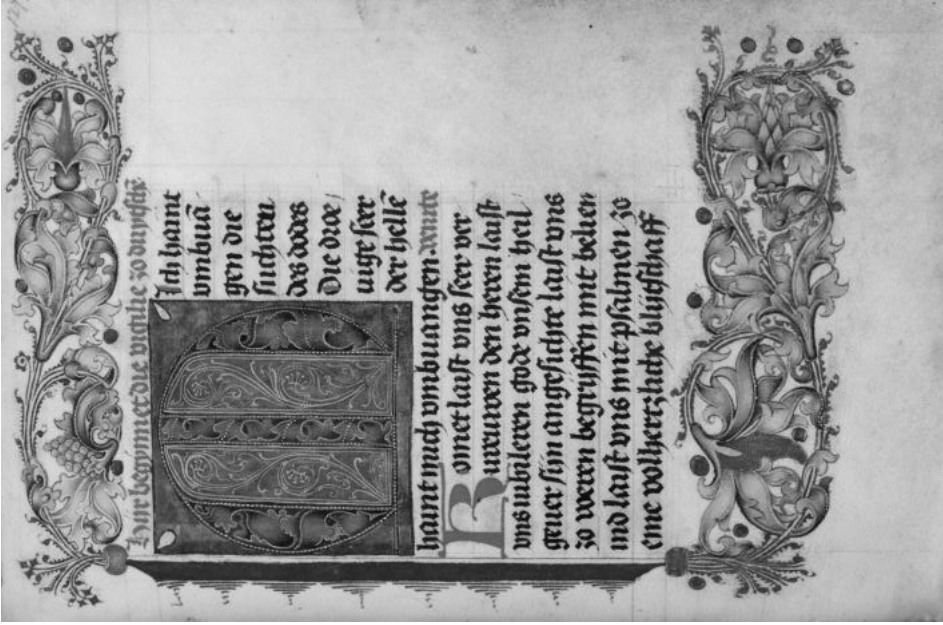 Hyr begynnet die vigilie zo duyschē
Mich haint
vmbuā
gen die
suchten
des dodes
Die droe/
uige seer
der hellē
haint mich vmbuangen Venite
Komet laist vns seer ver
urouwen den heren laist
vns iubileren gode vnsen heil
geuer sijn angesichte laist vns
zo voern begryffen mit belien
ind laist vns mit psalmen zo
eme volhertzliche blijtschaff